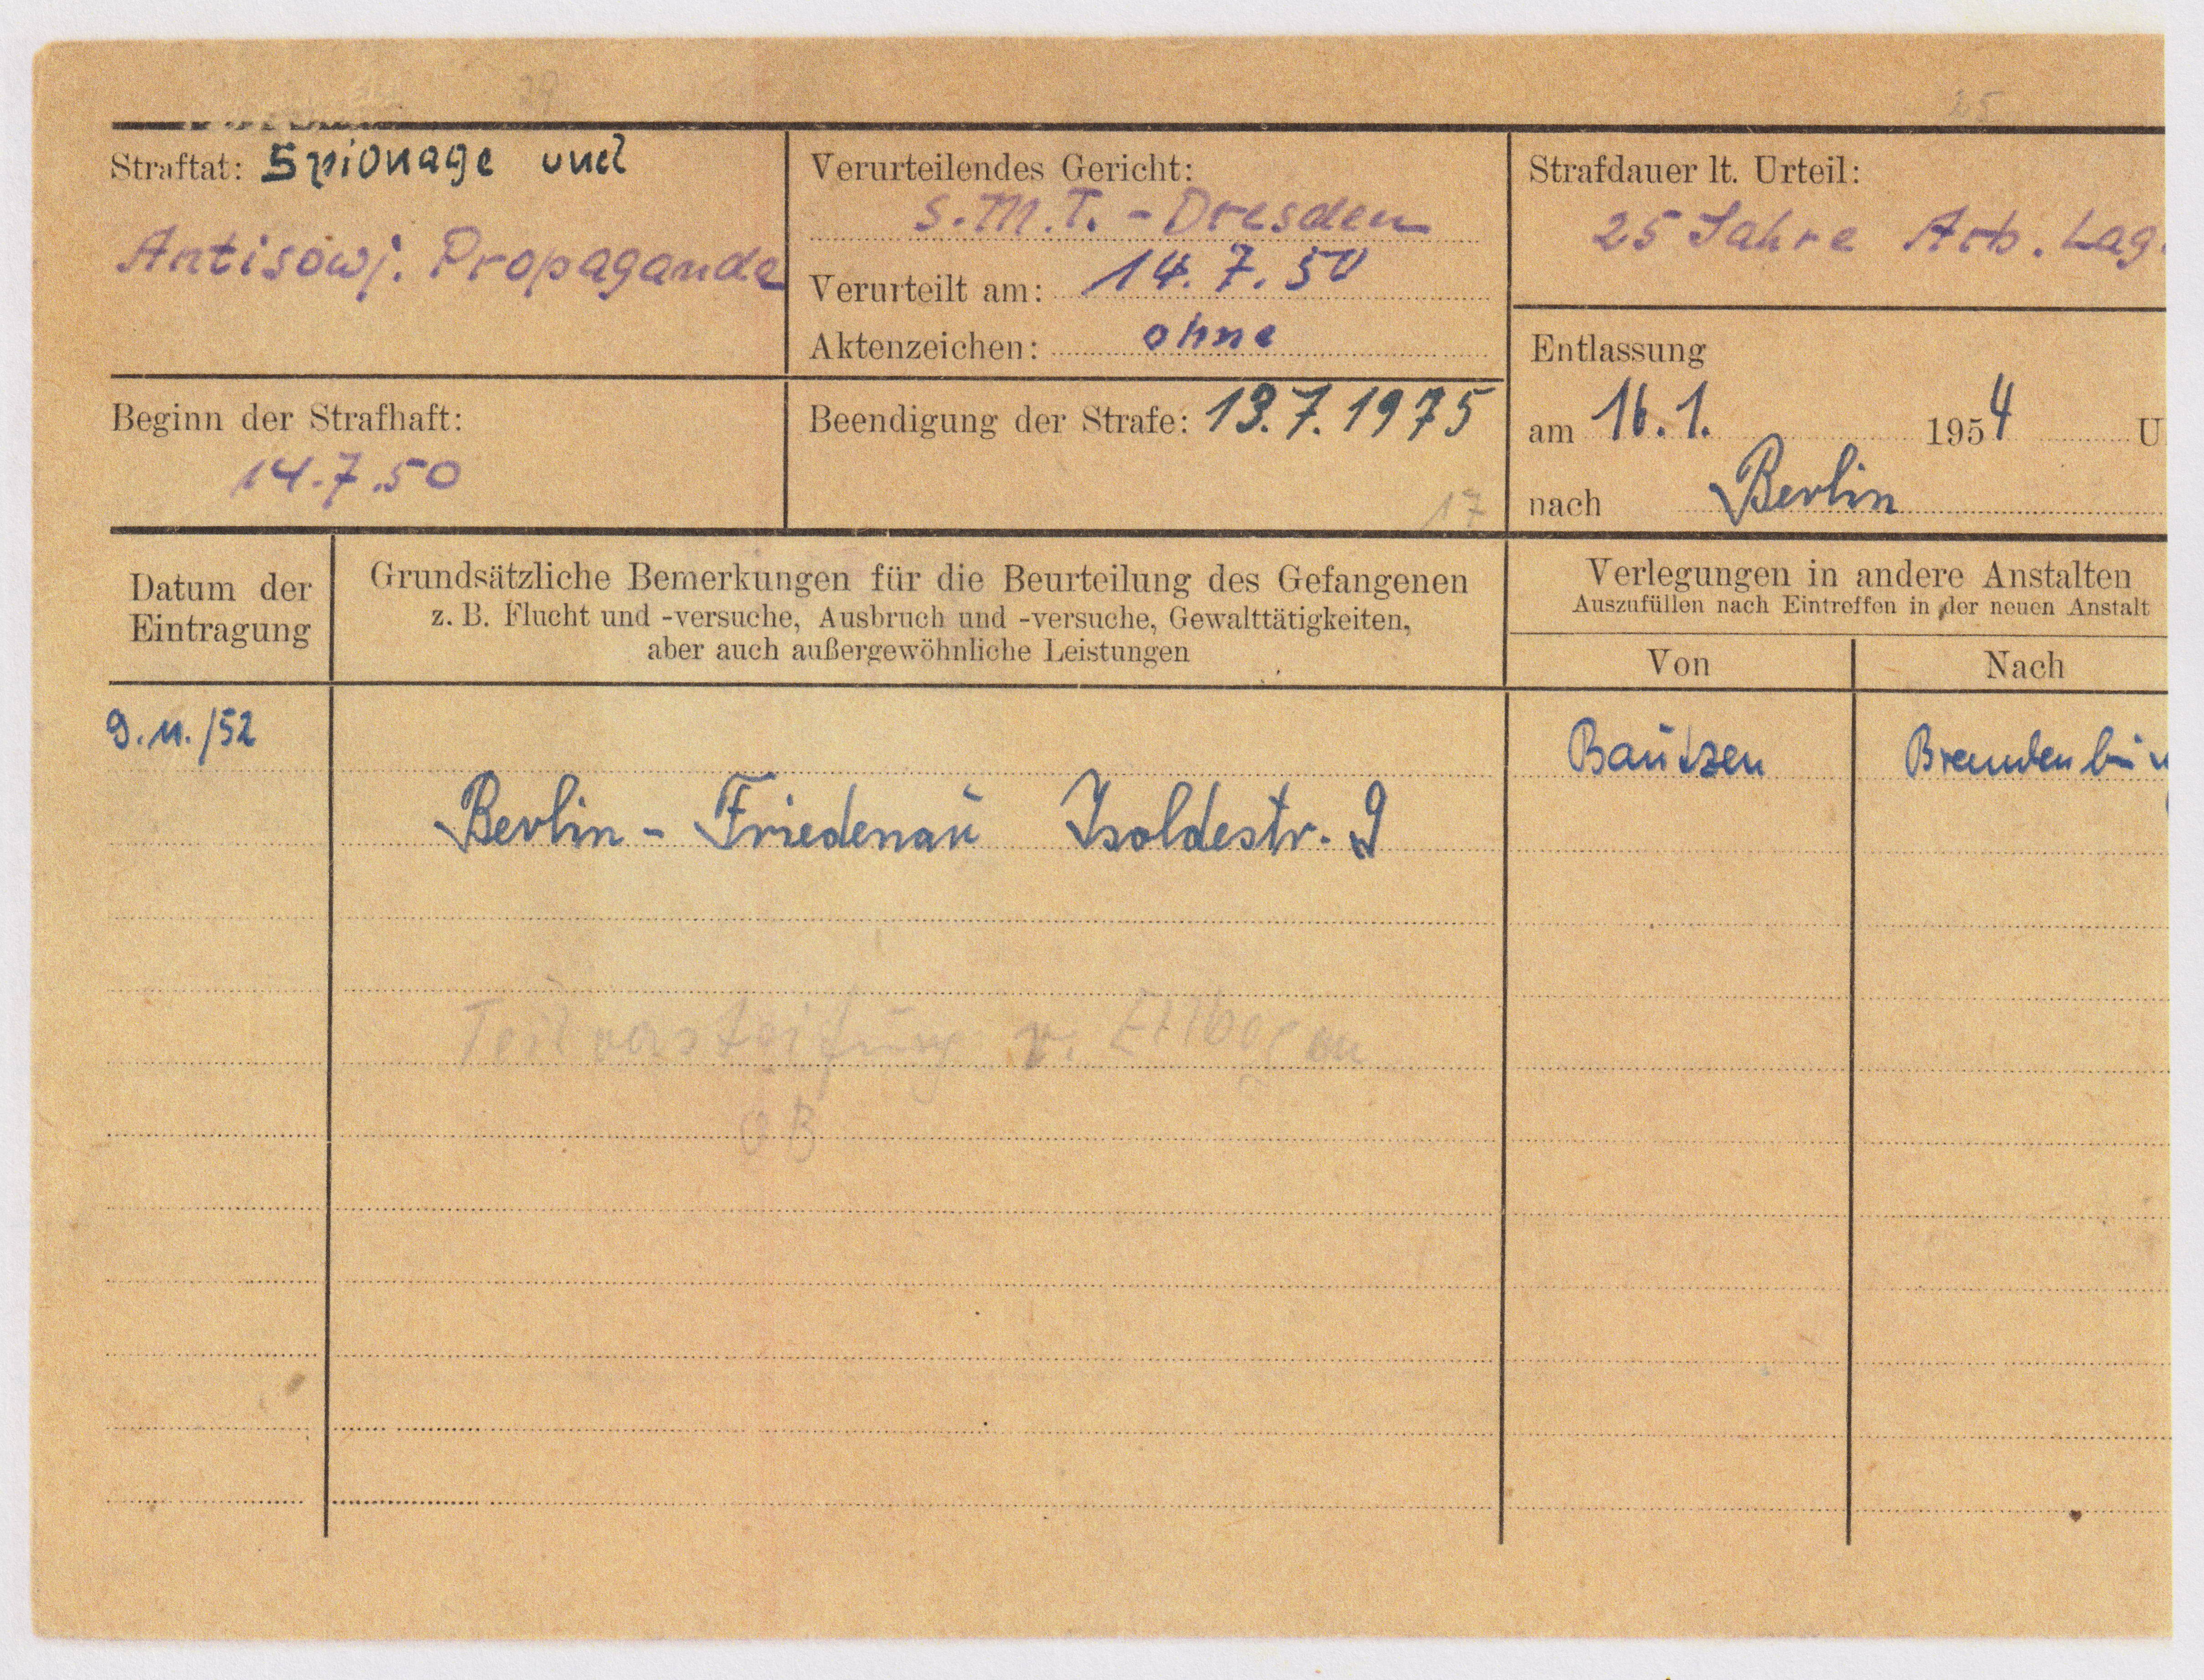 Straftat: Spionage und
Antisowj. Propagande
Verurteilendes Gericht:
S.M.T. - Dresden
Verurteilt am: 14. 7. 50
Aktenzeichen: ohne
Strafdauer lt. Urteil:
25 Jahre Arb. Lag.
Entlassung
am 16. 1. 1954 U
nach Berlin
Beginn der Strafhaft:
14.7.50
Beendigung der Strafe: 13.7.1975
17
Datum der
Eintragung
Grundsätzliche Bemerkungen für die Beurteilung des Gefangenen
z. B. Flucht und -versuche, Ausbruch und -versuche, Gewalttätigkeiten,
aber auch außergewöhnliche Leistungen
Verlegungen in andere Anstalten
Auszufüllen nach Eintreffen in der neuen Anstalt
Von
Nach
9.11./52
Bautzen
Brandenburg
Berlin - Friedenau Isoldestr. 9